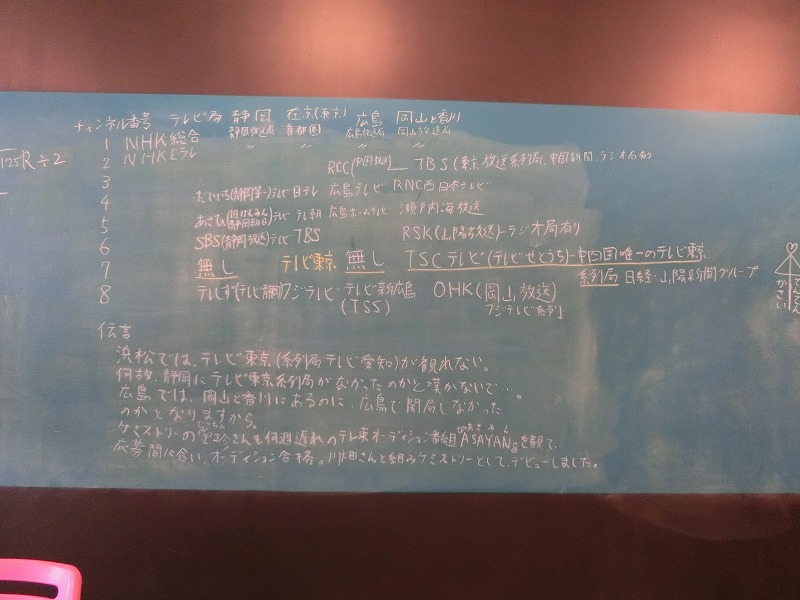 チャンネル番号 テレビ局 静岡 在京(東京) 広島 岡山と香川
静岡放送局 首都圏 広島放送局 岡山放送局
1 NHK総合 〃 〃 〃
2 NHKEテレ
3 RCC(中国放送) TBS(東京放送系列局.中国新聞.ラジオ局有
4 だいいち(静岡第一)テレビ 日テレ 広島テレビ RNC西日本テレビ
5 あさひ(静岡朝日)テレビ テレ朝 広島ホームテレビ 瀬戸内海放送
6 SBS(静岡放送)テレビ TBS RSK(山陽放送)-ラジオ局有り
7 無し テレビ東京 無し TSCテレビ(テレビせとうち)-中四国唯一のテレビ東京
系列局 日経・山陽新聞グループ
8 テレしず(テレビ静岡)フジテレビ テレビ新広島 OHK(岡山放送)
(TSS) フジテレビ系列
伝言
浜松では、テレビ東京(系列局テレビ愛知)が観れない。
何故、静岡にテレビ東京系列局がなかったのかと嘆かないで…。
広島では、岡山と香川にあるのに、広島で開局しなかった
のかとなりますから。
ケミストリーの さんも何週遅れのテレ東オーディション番組「ASAYAN」を観て、
応募間に合い、オーディション合格。川畑さんと組みケミストリーとして、デビューしました。
125R÷2
かさい
でんでん